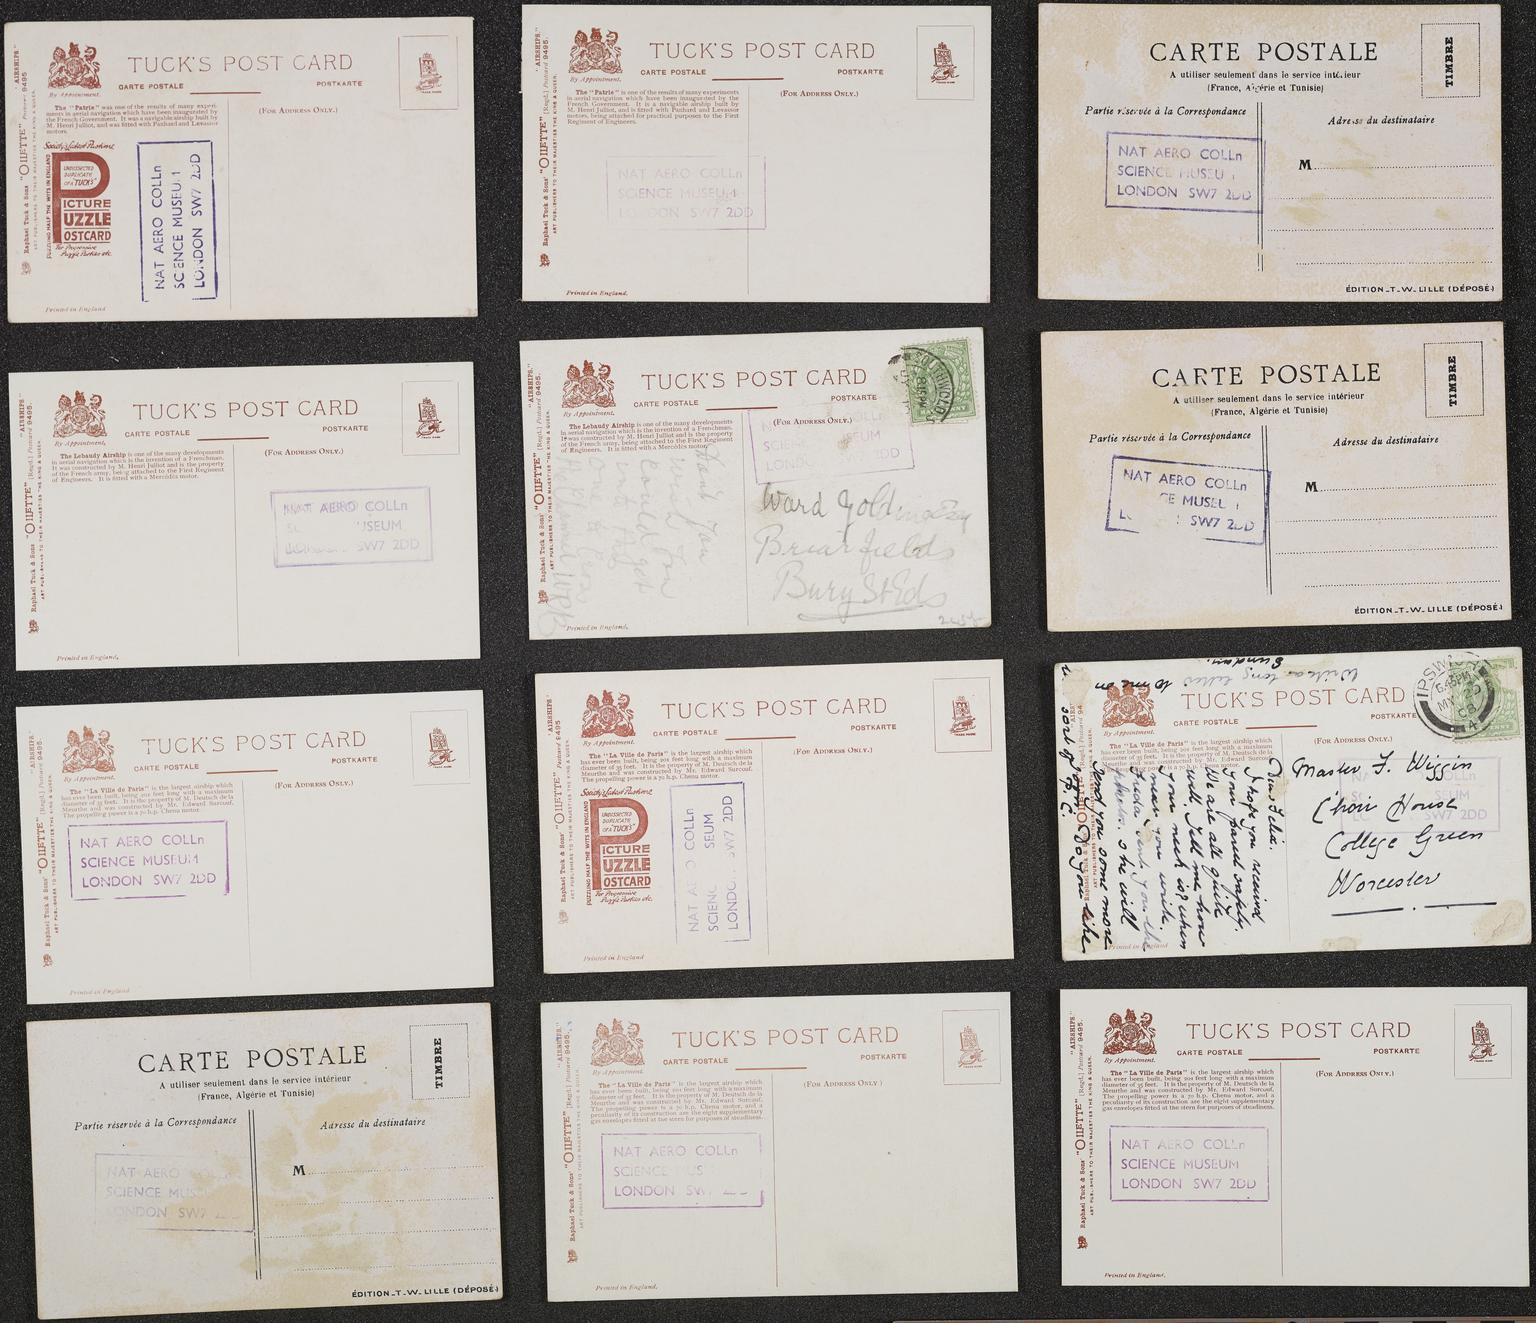 TUCK'S POST CARD
CARTE POSTALE
POSTKARTE
By Appointment.
(FOR ADDRESS ONLY.)
The "Patrie" was one of the results of many experi-
ments in aerial navigation which have been inaugurated by
the French Government. It was a navigable airship built by
M. Henri Julliot, and was fitted with Panhard and Levassor
motors.
Society's Latest Pastime
UNDISSECTED
DUPLICATE
OF A "TUCK'S"
PICTURE
PUZZLE
POSTCARD
For Progressive
Puzzle Parties etc.
PUZZLING HALF THE WITS IN ENGLAND
Raphael Tuck & Sons' "OILETTE" [Regd.] Postcard 9495
"AIRSHIPS."
ART PUBLISHERS TO THEIR MAJESTIES THE KING & QUEEN.
NAT AERO COLLn
SCIENCE MUSEUM
LONDON SW7 2DD
Printed in England
TUCK'S POST CARD
CARTE POSTALE
POSTKARTE
By Appointment.
(FOR ADDRESS ONLY.)
The "Patrie" is one of the results of many experiments
in aerial navigation which have been inaugurated by the
French Government. It is a navigable airship built by
M. Henri Julliot, and is fitted with Panhard and Levassor
motors, being attached for practical purposes to the First
Regiment of Engineers.
"AIRSHIPS."
Raphael Tuck & Sons' "OILETTE" [Regd.] Postcard 9495.
ART PUBLISHERS TO THEIR MAJESTIES THE KING & QUEEN.
NAT AERO COLLn
SCIENCE MUSEUM
LONDON SW7 2DD
Printed in England.
CARTE POSTALE
A utiliser seulement dans le service intérieur
(France, Algérie et Tunisie)
TIMBRE
Partie réservée à la Correspondance
Adresse du destinataire
M
NAT AERO COLLn
SCIENCE MUSEUM
LONDON SW7 2DD
ÉDITION_T_W_LILLE (DÉPOSÉ)
TUCK'S POST CARD
CARTE POSTALE
POSTKARTE
By Appointment.
(FOR ADDRESS ONLY.)
The Lebaudy Airship is one of the many developments
in aerial navigation which is the invention of a Frenchman.
It was constructed by M. Henri Julliot and is the property
of the French army, being attached to the First Regiment
of Engineers. It is fitted with a Mercédès motor.
"AIRSHIPS."
Raphael Tuck & Sons' "OILETTE" [Regd.] Postcard 9495.
ART PUBLISHERS TO THEIR MAJESTIES THE KING & QUEEN.
NAT AERO COLLn
USEUM
SW7 2DD
Printed in England.
TUCK'S POST CARD
CARTE POSTALE
POSTKARTE
By Appointment.
(FOR ADDRESS ONLY.)
The Lebaudy Airship is one of the many developments
in aerial navigation which is the invention of a Frenchman.
It was constructed by M. Henri Julliot and is the property
of the French army, being attached to the First Regiment
of Engineers. It is fitted with a Mercédès motor.
Raphael Tuck & Sons' "OILETTE" [Regd.] Postcard 9495.
"AIRSHIPS."
ART PUBLISHERS TO THEIR MAJESTIES THE KING & QUEEN.
2DD
Don't you
wish you
could
Ward Golding Esq
Briarfields
Bury St Eds
Printed in England.
CARTE POSTALE
A utiliser seulement dans le service intérieur
(France, Algérie et Tunisie)
TIMBRE
Partie réservée à la Correspondance
Adresse du destinataire
M
NAT AERO COLLn
CE MUSEU
SW7 2DD
ÉDITION_T_W_LILLE (DÉPOSÉ)
TUCK'S POST CARD
CARTE POSTALE
POSTKARTE
By Appointment.
(FOR ADDRESS ONLY.)
The "La Ville de Paris" is the largest airship which
has ever been built, being 202 feet long with a maximum
diameter of 35 feet. It is the property of M. Deutsch de la
Meurthe and was constructed by Mr. Edward Surcouf.
The propelling power is a 70 h.p. Chenu motor.
"AIRSHIPS"
Raphael Tuck & Sons' "OILETTE" [Regd.] Postcard 9495
ART PUBLISHERS TO THEIR MAJESTIES THE KING & QUEEN.
NAT AERO COLLn
SCIENCE MUSEUM
LONDON SW7 2DD
Printed in England
TUCK'S POST CARD
CARTE POSTALE
POSTKARTE
By Appointment.
(FOR ADDRESS ONLY.)
The "La Ville de Paris" is the largest airship which
has ever been built, being 202 feet long with a maximum
diameter of 35 feet. It is the property of M. Deutsch de la
Meurthe and was constructed by Mr. Edward Surcouf.
The propelling power is a 70 h.p. Chenu motor.
Society's Latest Pastime
UNDISSECTED
DUPLICATE
OF A "TUCK'S"
PICTURE
PUZZLE
POSTCARD
For Progressive
Puzzle Parties etc.
PUZZLING HALF THE WITS IN ENGLAND
Raphael Tuck & Sons' "OILETTE" [Regd.] Postcard 9495
"AIRSHIPS"
ART PUBLISHERS TO THEIR MAJESTIES THE KING & QUEEN.
NAT AERO COLLn
SCIENC SEUM
LONDON SW7 2DD
Printed in England
TUCK'S POST CARD
CARTE POSTALE
POSTKARTE
By Appointment.
(FOR ADDRESS ONLY.)
IPSWICH
6.45PM
MY 20
08
4
The "La Ville de Paris" is the largest airship which
Write a long letter
to me on
Sunday.
Dear Felix.
I hope you received
your parcel safely.
We are all quite
well. Tell me how
your neck is when
next you write.
she will
send you some more
Do you like
sort of P.C.
Master F. Wiggin
Choir House
College Green
Worcester
Printed in England
CARTE POSTALE
A utiliser seulement dans le service intérieur
(France, Algérie et Tunisie)
TIMBRE
Partie réservée à la Correspondance
Adresse du destinataire
M
NAT AERO COLLn
SCIENCE MUSE
LONDON SW7
ÉDITION_T_W_LILLE (DÉPOSÉ)
TUCK'S POST CARD
CARTE POSTALE
POSTKARTE
By Appointment.
(FOR ADDRESS ONLY.)
The "La Ville de Paris" is the largest airship which
has ever been built, being 202 feet long with a maximum
diameter of 35 feet. It is the property of M. Deutsch de la
Meurthe and was constructed by Mr. Edward Surcouf.
The propelling power is a 70 h.p. Chenu motor, and a
peculiarity of its construction are the eight supplementary
gas envelopes fitted at the stern for purposes of steadiness.
"AIRSHIPS."
Raphael Tuck & Sons' "OILETTE" [Regd.] Postcard 9495.
ART PUBLISHERS TO THEIR MAJESTIES THE KING & QUEEN.
NAT AERO COLLn
SCIENCE MUS
LONDON SW
Printed in England.
TUCK'S POST CARD
CARTE POSTALE
POSTKARTE
By Appointment.
(FOR ADDRESS ONLY.)
The "La Ville de Paris" is the largest airship which
has ever been built, being 202 feet long with a maximum
diameter of 35 feet. It is the property of M. Deutsch de la
Meurthe and was constructed by Mr. Edward Surcouf.
The propelling power is a 70 h.p. Chenu motor, and a
peculiarity of its construction are the eight supplementary
gas envelopes fitted at the stern for purposes of steadiness.
"AIRSHIPS."
Raphael Tuck & Sons' "OILETTE" [Regd.] Postcard 9495.
ART PUBLISHERS TO THEIR MAJESTIES THE KING & QUEEN.
NAT AERO COLLn
SCIENCE MUSEUM
LONDON SW7 2DD
Printed in England.